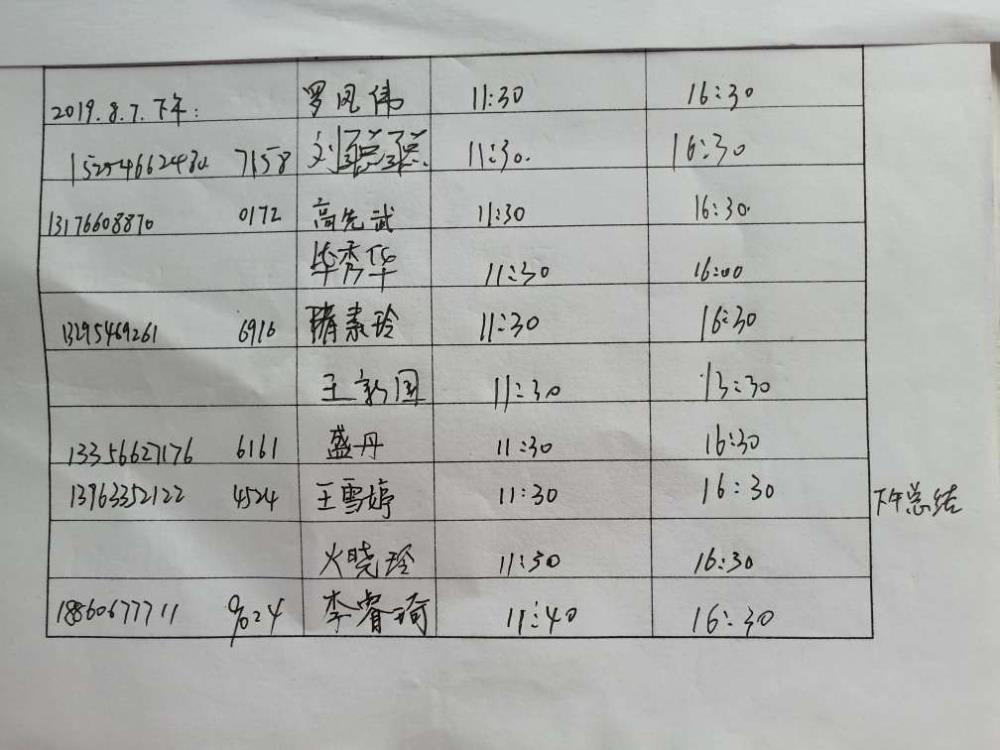 2019.8.7.下午: 罗凤伟 11:30 16:30
7158 刘 11:30. 16:30
13176608870 0172 高先武 11:30 16:30.
毕秀华 11:30 16:00
13295469261 6916 隋素玲 11:30 16:30
王新国 11:30 13:30
13356627176 6161 盛丹 11:30 16:30
13963352122 4524 王雪婷 11:30 16:30 下午总结
火晓玲 11:30 16:30
18860677711 9024 李睿琦 11:40 16:30